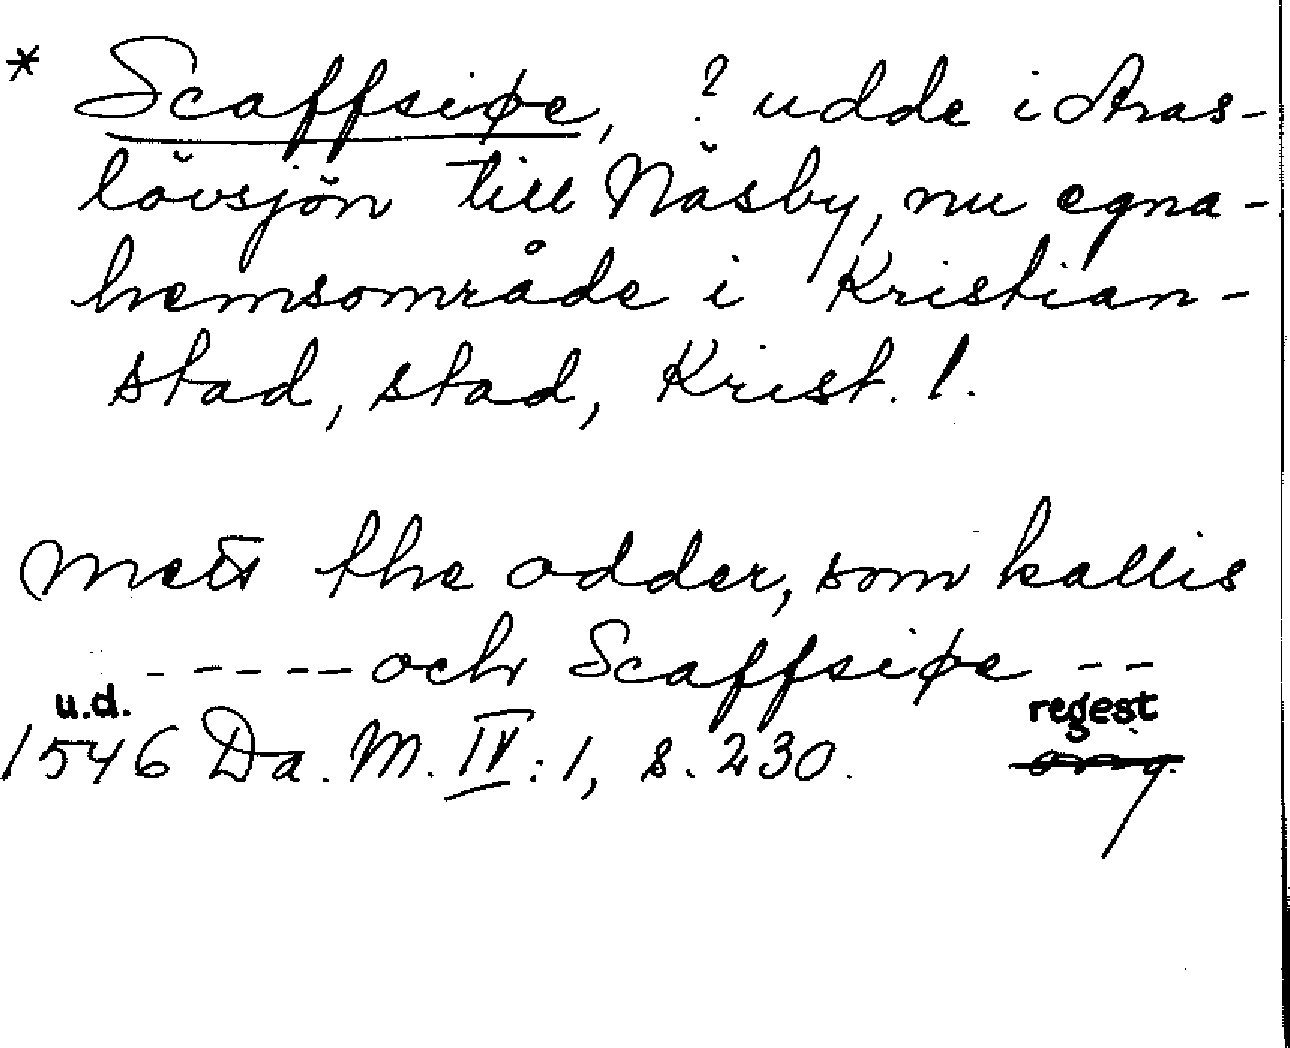 * Scaffsiøe, ? udde i Aras-
lövsjön till Näsby, nu egna-
hemsområde i Kristian-
stad, stad, Krist. l.
mett the odder, som kallis
----- och Scaffsiøe --
u.d. regest
1546 Da. M. IV:1, s. 230. orig.